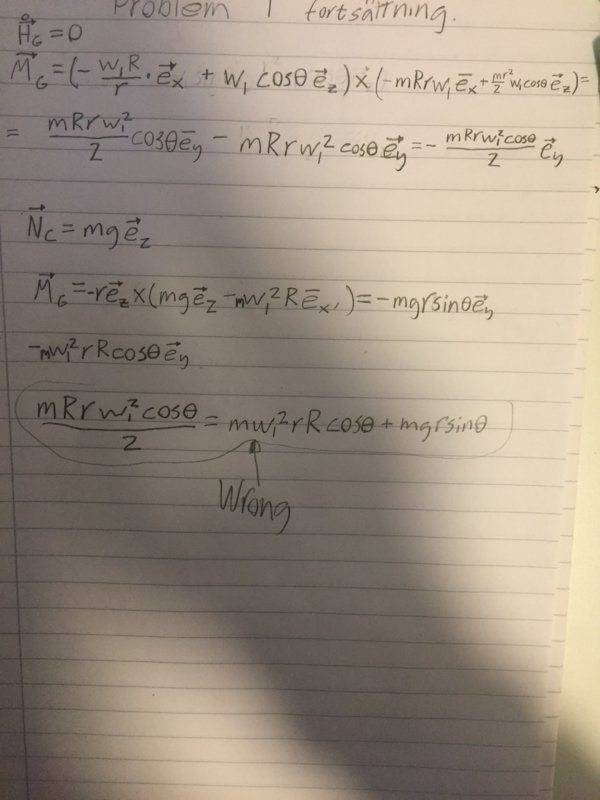 Problem 1 fortsättning.
H̊_G = 0
M⃗_G = (-w₁R/r · e⃗_x + w₁ cosθ e⃗_z) × (-mRrw₁ e̅_x + mr²/2 w₁ cosθ e⃗_z) =
= mRrw₁²/2 cosθ e̅_y - mRrw₁² cosθ e⃗_y = - mRrw₁² cosθ/2 e⃗_y
N⃗_C = mg e⃗_z
M⃗_G = -r e⃗_z × (mg e⃗_z - mw₁² R e̅_x') = -mgr sinθ e⃗_y
-mw₁² rR cosθ e⃗_y
mRrw₁² cosθ/2 = mw₁² rR cosθ + mgr sinθ
Wrong